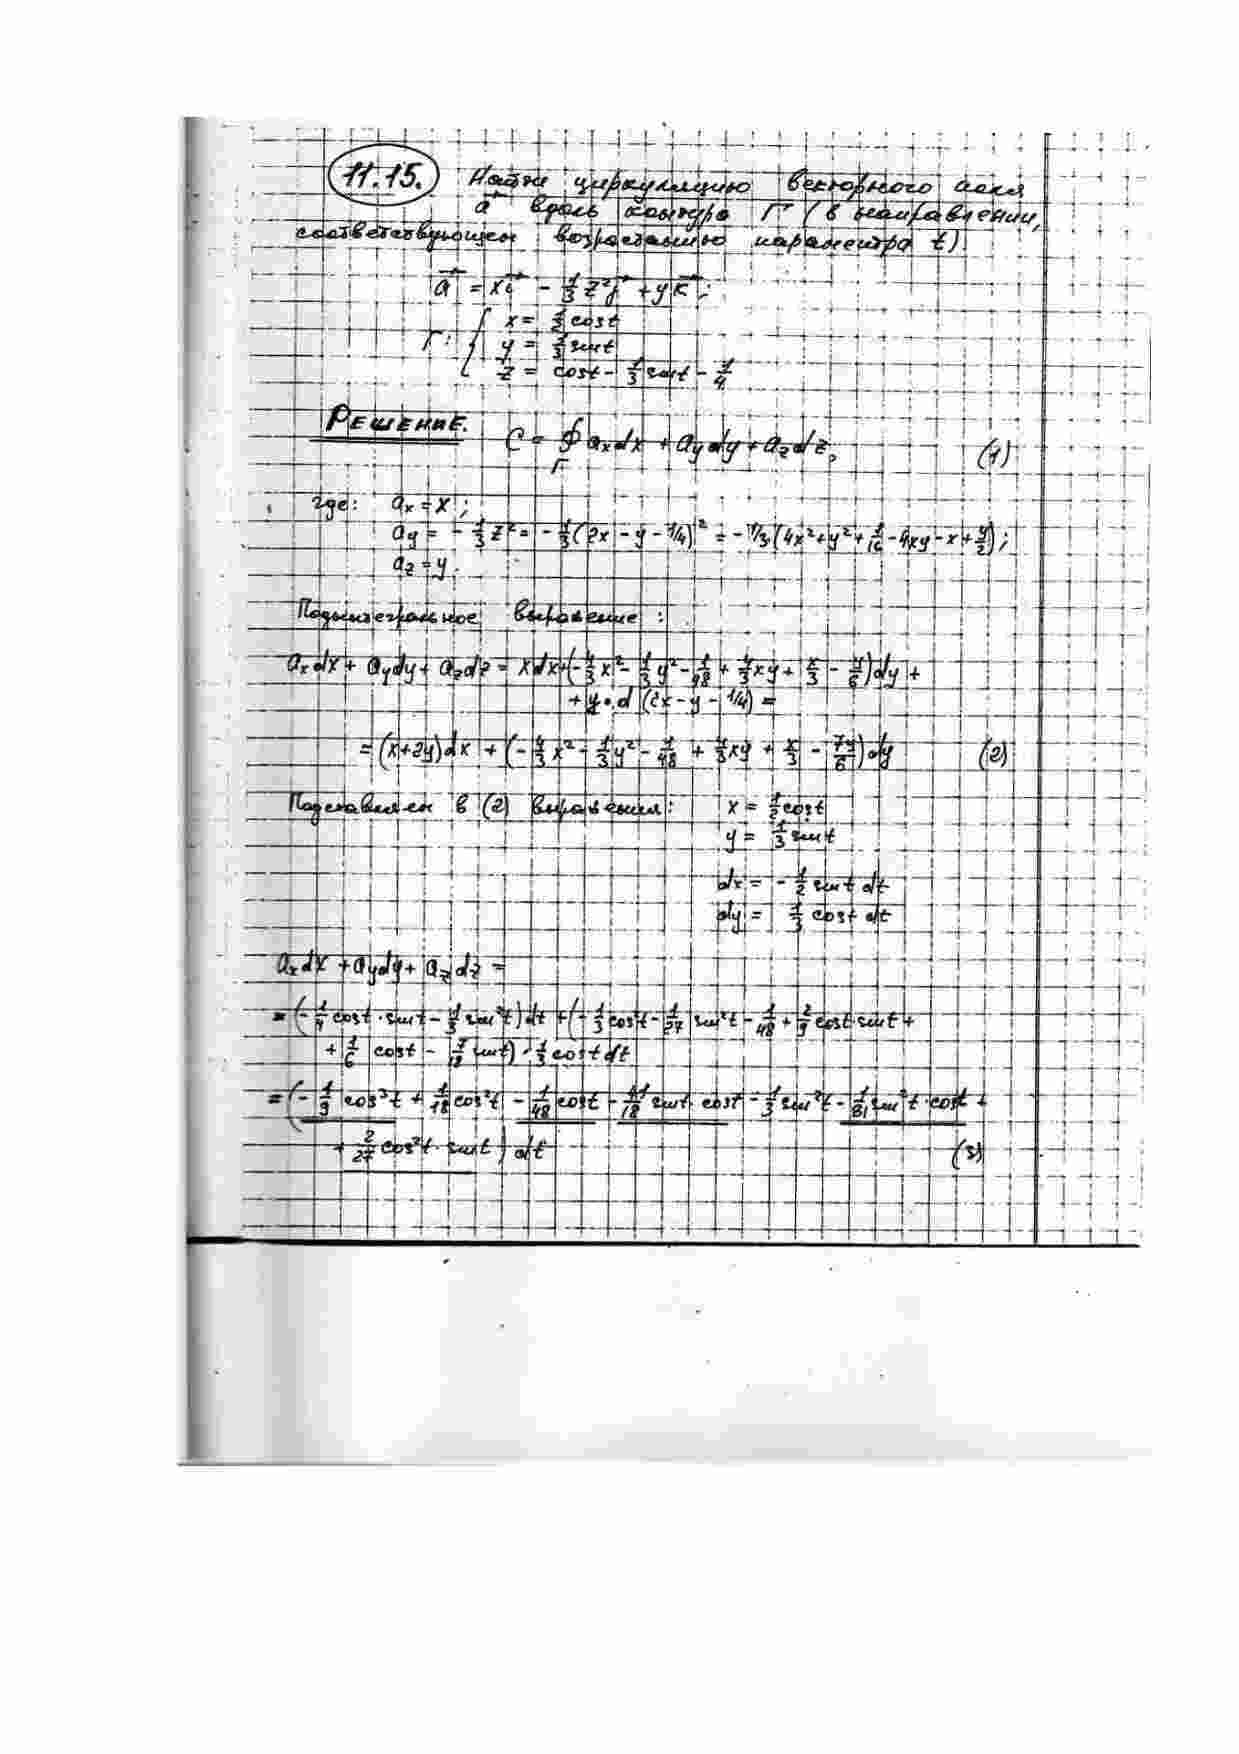 11.15. Найти циркуляцию векторного поля
a⃗ вдоль контура Г (в направлении,
соответствующем возрастанию параметра t)
a⃗ = xi⃗ - 1/3 z²j⃗ + yk⃗;
x = 1/2 cost
Г: { y = 1/3 sint
z = cost - 1/3 sint - 1/4
РЕШЕНИЕ. C = ∮_Г aₓdx + a_y dy + a_z dz, (1)
где: aₓ = x;
a_y = - 1/3 z² = - 1/3 (2x - y - 1/4)² = - 1/3 (4x² + y² + 1/16 - 4xy - x + y/2);
a_z = y.
Подынтегральное выражение:
aₓdx + a_y dy + a_z dz = xdx + (- 4/3 x² - 1/3 y² - 1/48 + 4/3 xy + x/3 - y/6) dy +
+ y · d (2x - y - 1/4) =
= (x + 2y) dx + (- 4/3 x² - 1/3 y² - 1/48 + 4/3 xy + x/3 - 7y/6) dy (2)
Подставляем в (2) выражения: x = 1/2 cost
y = 1/3 sint
dx = - 1/2 sint dt
dy = 1/3 cost dt
aₓdx + a_y dy + a_z dz =
= (- 1/4 cost · sint - 1/3 sin²t) dt + (- 1/3 cos²t - 1/27 sin²t - 1/48 + 2/9 cost sint +
+ 1/6 cost - 7/18 sint) · 1/3 cost dt
= (- 1/9 cos³t + 1/18 cos²t - 1/48 cost - sint · cost - 1/3 sin²t - 1/81 sin²t · cost +
+ 2/27 cos²t · sint) dt (3)